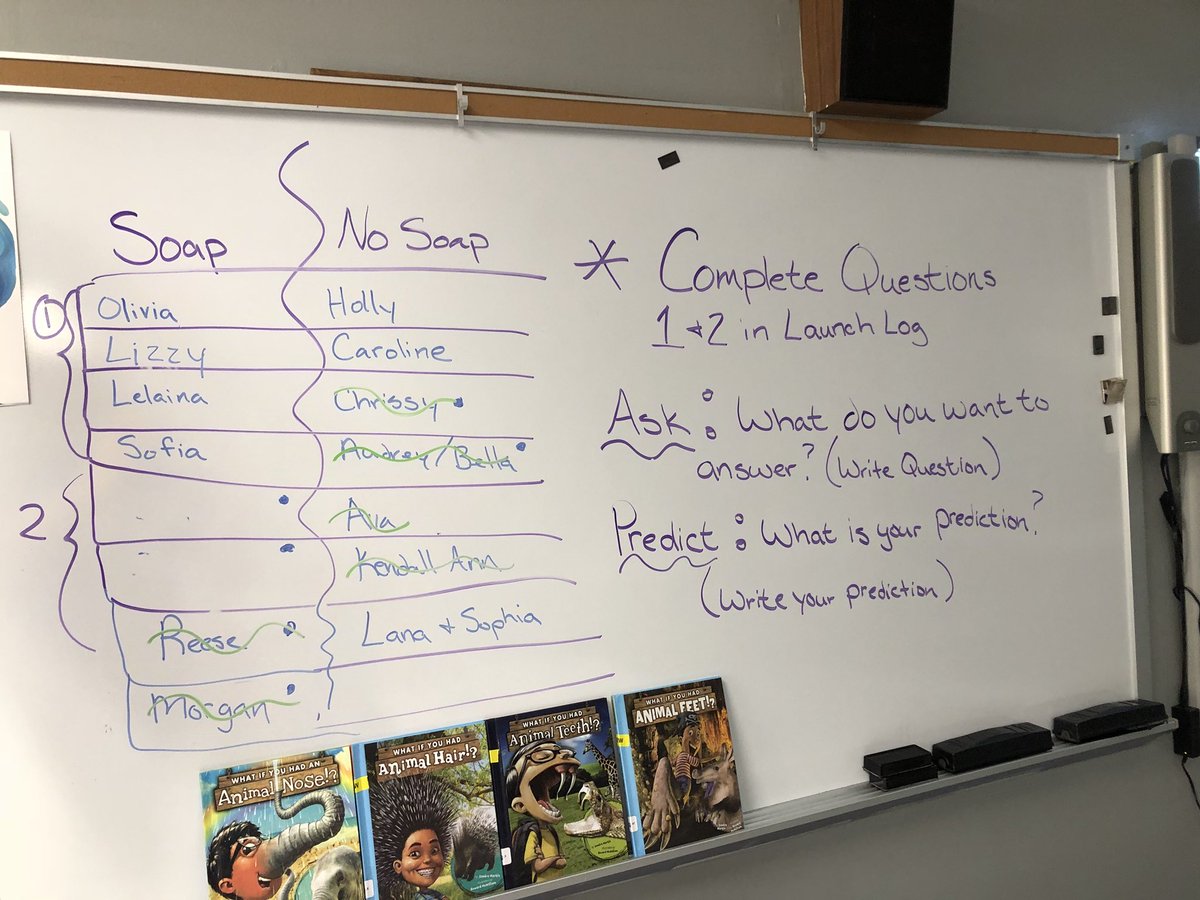 Soap
No Soap
1
Olivia
Holly
Lizzy
Caroline
Lelaina
Chrissy
Sofia
Audrey/Bella
2
Ava
Kendall Ann
Reese
Lana + Sophia
Morgan
* Complete Questions
1 + 2 in Launch Log
Ask: What do you want to
answer? (Write Question)
Predict: What is your prediction?
(Write your prediction)
WHAT IF YOU HAD AN
Animal Nose!?
WHAT IF YOU HAD
Animal Hair!?
WHAT IF YOU HAD
Animal Teeth!?
WHAT IF YOU HAD
ANIMAL FEET!?